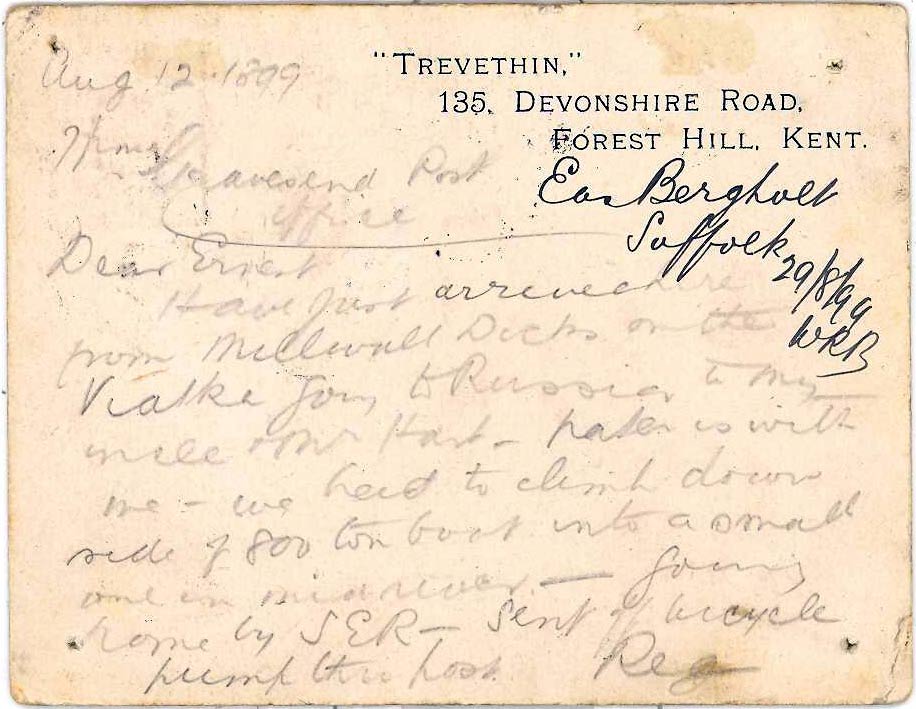 Aug. 12. 1899
"TREVETHIN,"
135, DEVONSHIRE ROAD,
FOREST HILL, KENT.
Gravesend Post
Office
East Bergholt
Suffolk
29/8/99
WRB
Dear Ernest
Have just arrived here
from Millwall Docks on the
Viatka going to Russia to my
uncle & Mr Hart - pater is with
me - we had to climb down
side of 800 ton boat into a small
one in mid river — Going
home by SER - Sent off bicycle
pump thro post. Reg